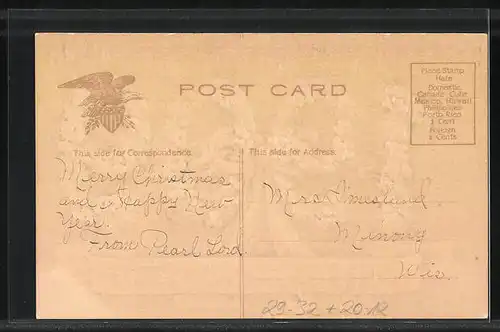 POST CARD
Place Stamp
Here
Domestic
Canada, Cuba
Mexico, Hawaii
Philippines
Porto Rico
1 Cent
Foreign
2 Cents
This side for Correspondence.
This side for Address.
Merry Christmas
and a Happy New
Year.
From Pearl Lord.
Mrs
Minong
Wis.
29-32 + 20-12